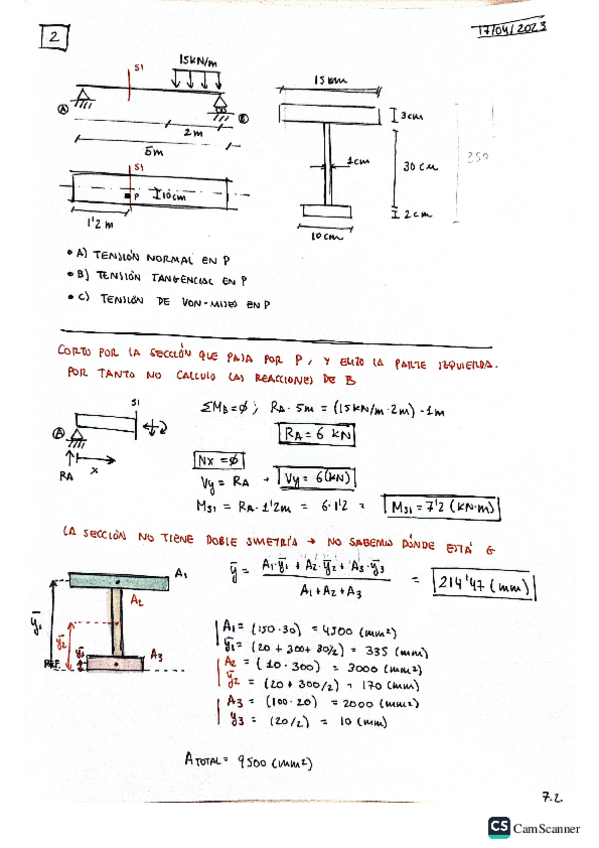 2
17/04/2023
15KN/m
S1
A
B
2m
5m
S1
P
10cm
1'2 m
15cm
3cm
1cm
30 cm
350
2cm
10cm
• A) TENSIÓN NORMAL EN P
• B) TENSIÓN TANGENCIAL EN P
• C) TENSIÓN DE VON-MISES EN P
CORTO POR LA SECCIÓN QUE PASA POR P, Y ELIJO LA PARTE IZQUIERDA.
POR TANTO NO CALCULO LAS REACCIONES DE B
S1
A
RA
x
ΣMB=∅; RA·5m = (15KN/m·2m)·1m
RA = 6 KN
Nx = ∅
Vy = RA → Vy = 6(KN)
MS1 = RA·1'2m = 6·1'2 = MS1 = 7'2 (KN·m)
LA SECCIÓN NO TIENE DOBLE SIMETRÍA → NO SABEMOS DÓNDE ESTÁ G
ȳ = A1·ȳ1 + A2·ȳ2 + A3·ȳ3 / A1 + A2 + A3 = 214'47 (mm)
A1
A2
A3
ȳ1
ȳ2
ȳ3
REF.
A1 = (150·30) = 4500 (mm²)
ȳ1 = (20 + 300 + 30/2) = 335 (mm)
A2 = (10·300) = 3000 (mm²)
ȳ2 = (20 + 300/2) = 170 (mm)
A3 = (100·20) = 2000 (mm²)
ȳ3 = (20/2) = 10 (mm)
ATOTAL = 9500 (mm²)
7.2
CS CamScanner